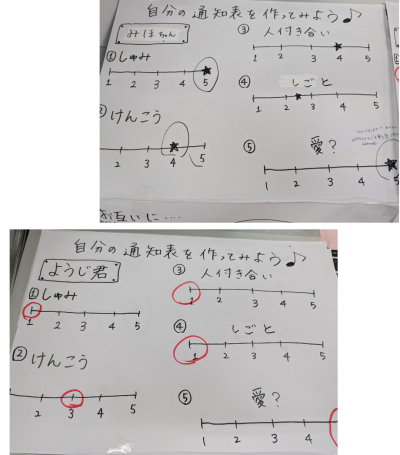 自分の通知表を作ってみよう♪
みほちゃん
①しゅみ
1 2 3 4 5
②けんこう
2 3 4 5
③人付き合い
1 2 3 4 5
④しごと
1 2 3 4 5
⑤愛?
1 2 3 4 5
お互いに....
自分の通知表を作ってみよう♪
ようじ君
①しゅみ
1 2 3 4 5
②けんこう
2 3 4 5
③人付き合い
1 2 3 4 5
④しごと
1 2 3 4 5
⑤愛?
1 2 3 4